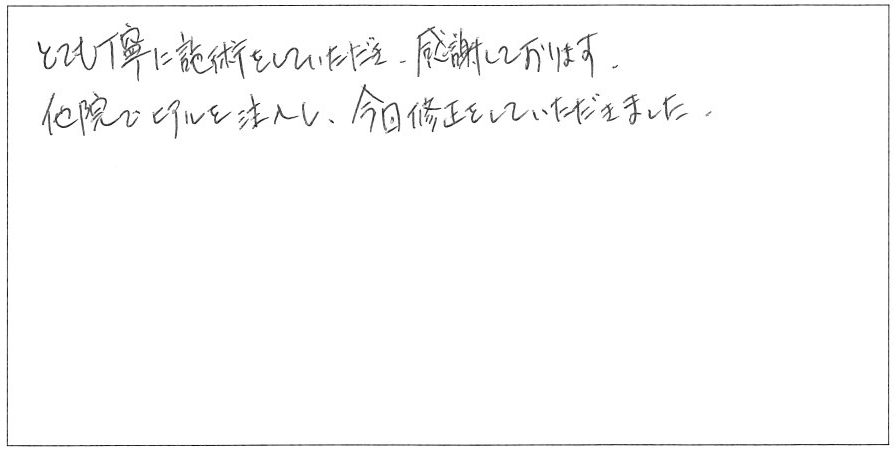 とても丁寧に施術をしていただき、感謝しております。
他院でヒアルを注入し、今日修正をしていただきました。